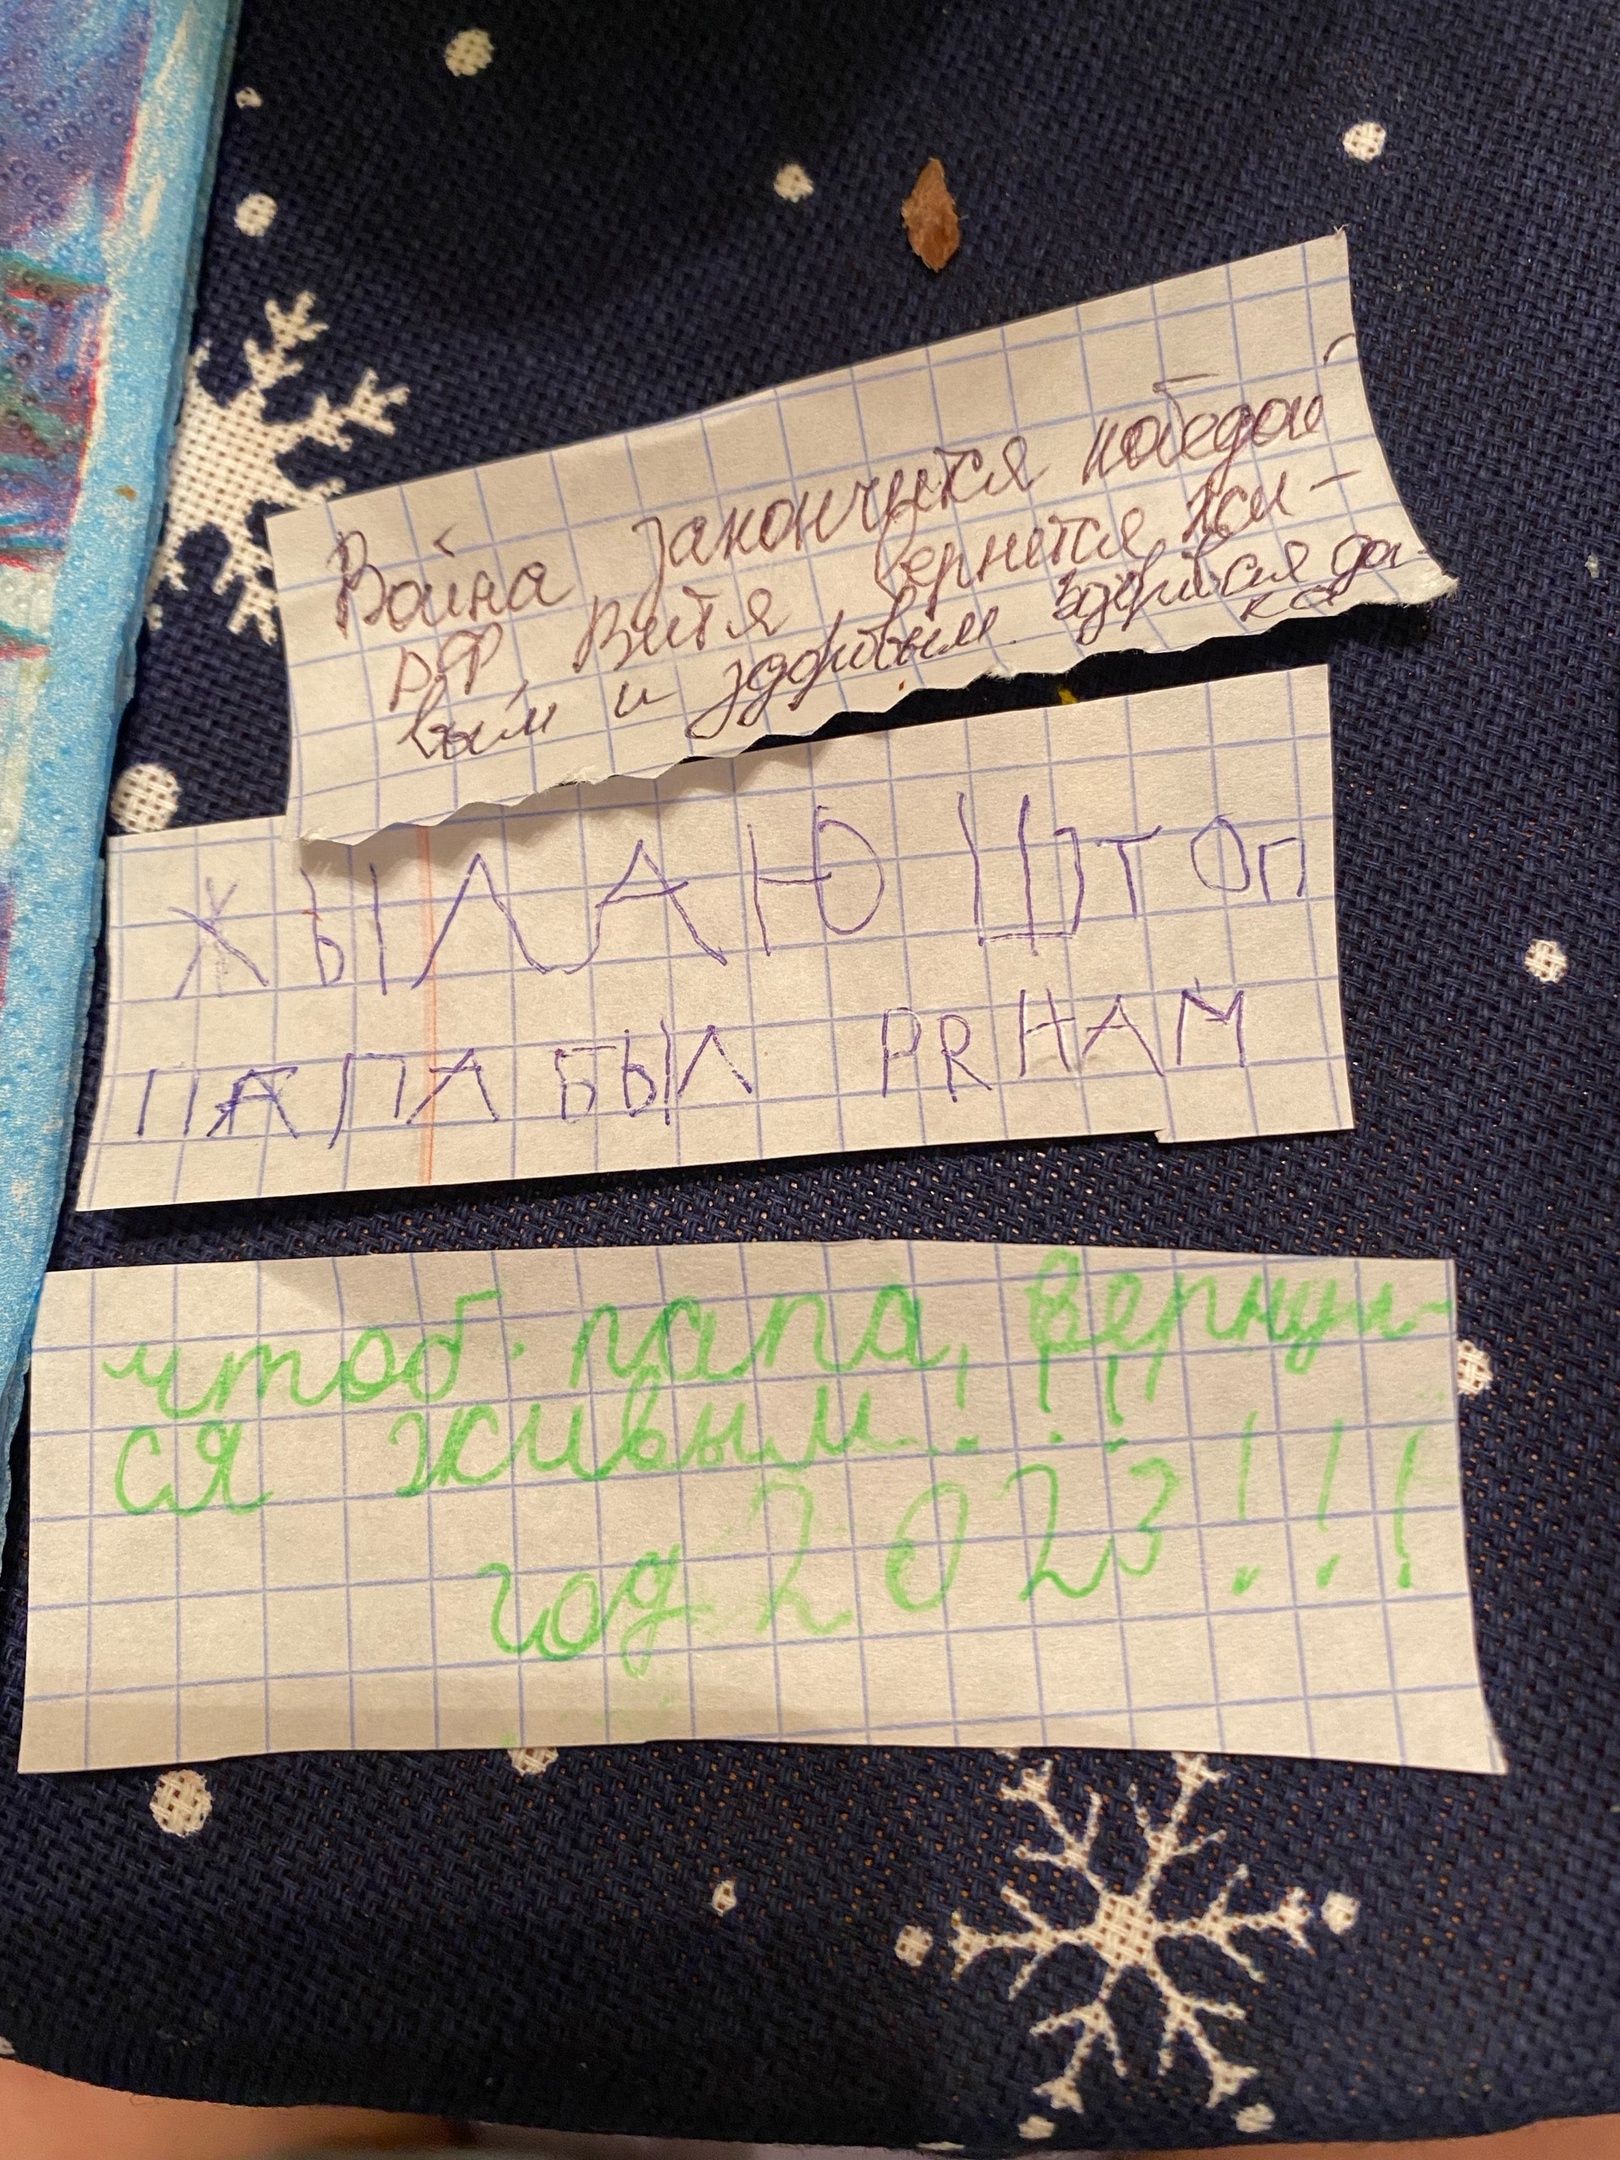 Война закончится победой
РФ, Витя вернется жи-
вым и здоровым. здоровья до-
ЖЫЛАЮ ШТОП
ПАПА БЫЛ РRНАМ
чтоб папа, вернул-
ся живым!!!
год 2023!!!